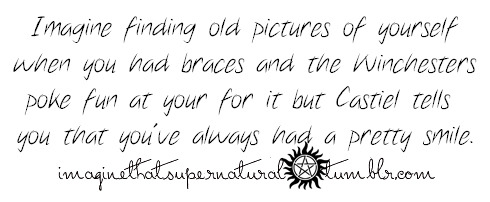 Imagine finding old pictures of yourself
when you had braces and the Winchesters
poke fun at your for it but Castiel tells
you that you've always had a pretty smile.
imaginethatsupernatural tumblr.com